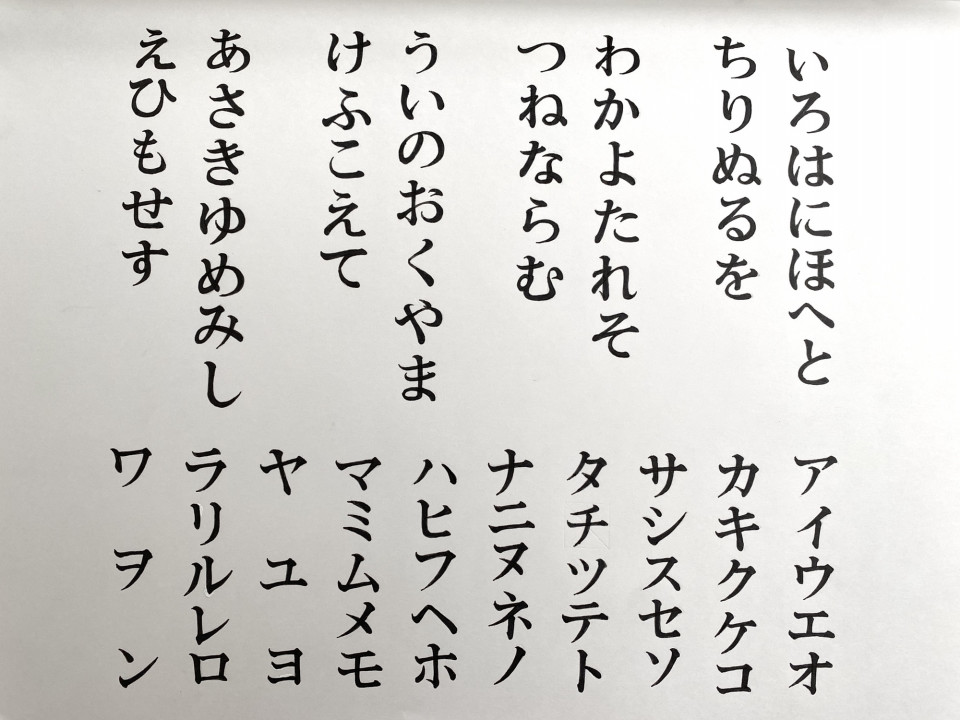 いろはにほへと
ちりぬるを
わかよたれそ
つねならむ
ういのおくやま
けふこえて
あさきゆめみし
えひもせす
アイウエオ
カキクケコ
サシスセソ
タチツテト
ナニヌネノ
ハヒフヘホ
マミムメモ
ヤ ユ ヨ
ラリルレロ
ワ ヲ ン